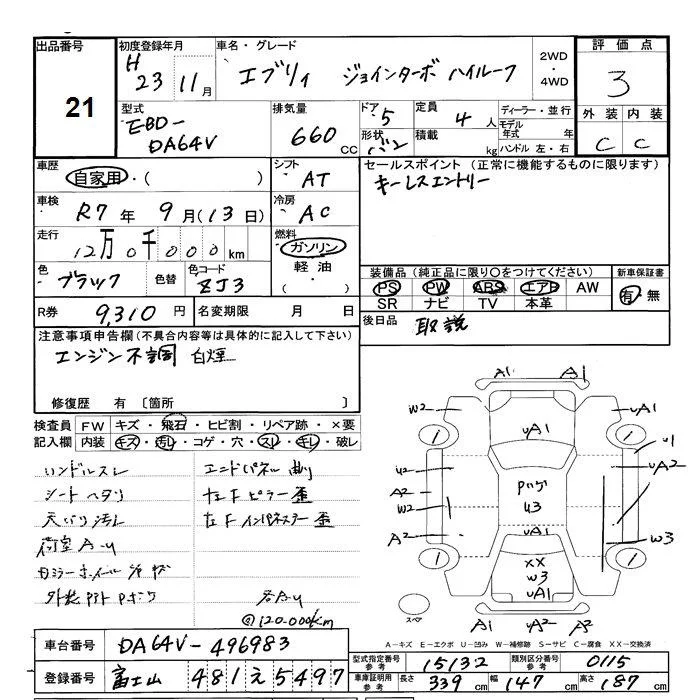 出品番号
21
初度登録年月
H 23 11月
車名・グレード
エブリィ ジョインターボ ハイルーフ
2WD
・
4WD
評価点
3
型式
EBD-
DA64V
排気量
660 CC
ドア 5
形状 バン
定員 4 人
積載 kg
ディーラー・並行
モデル年式 年
ハンドル 左・右
外装 内装
C C
車歴
自家用・( )
シフト
AT
セールスポイント (正常に機能するものに限ります)
キーレスエントリー
車検
R7 年 9 月 (13 日)
冷房
AC
走行
12万0千000 km
燃料
ガソリン
軽油
・
( )
色
ブラック
色替
色コード
ZJ3
装備品 (純正品に限り○をつけてください)
新車保証書
PS PW ABS エアB AW
SR ナビ TV 本革
有・無
R券 9,310 円
名変期限 月 日
後日品 取説
注意事項申告欄 (不具合内容等は具体的に記入して下さい)
エンジン不調 白煙
修復歴 有 〔箇所 〕
検査員記入欄
FW キズ・飛石・ヒビ割・リペア跡・×要
内装 キズ・汚レ・コゲ・穴・スレ・キレ・破レ
ハンドルスレ
シートヘタリ
天バリ汚レ
荷室A-U
エンドパネル曲り
左Fピラー歪
左Fインパネスター歪
各A-U
@120,000km
A1 A1
W2 UA1 UA1
1 1
U2 U1
A2 UA2
W2
A2 W3
U3
UA1
XX
W3
UA1
1 1
スペア
U1 UA2 A2
A-キズ E-エクボ U-凹み W-補修跡 S-サビ C-腐食 XX-交換済
車台番号 DA64V-496983
登録番号 富士山 481え5497
型式指定番号 参考 15132
類別区分番号 参考 0115
車庫証明用 参考 長さ 339 cm 幅 147 cm 高さ 187 cm